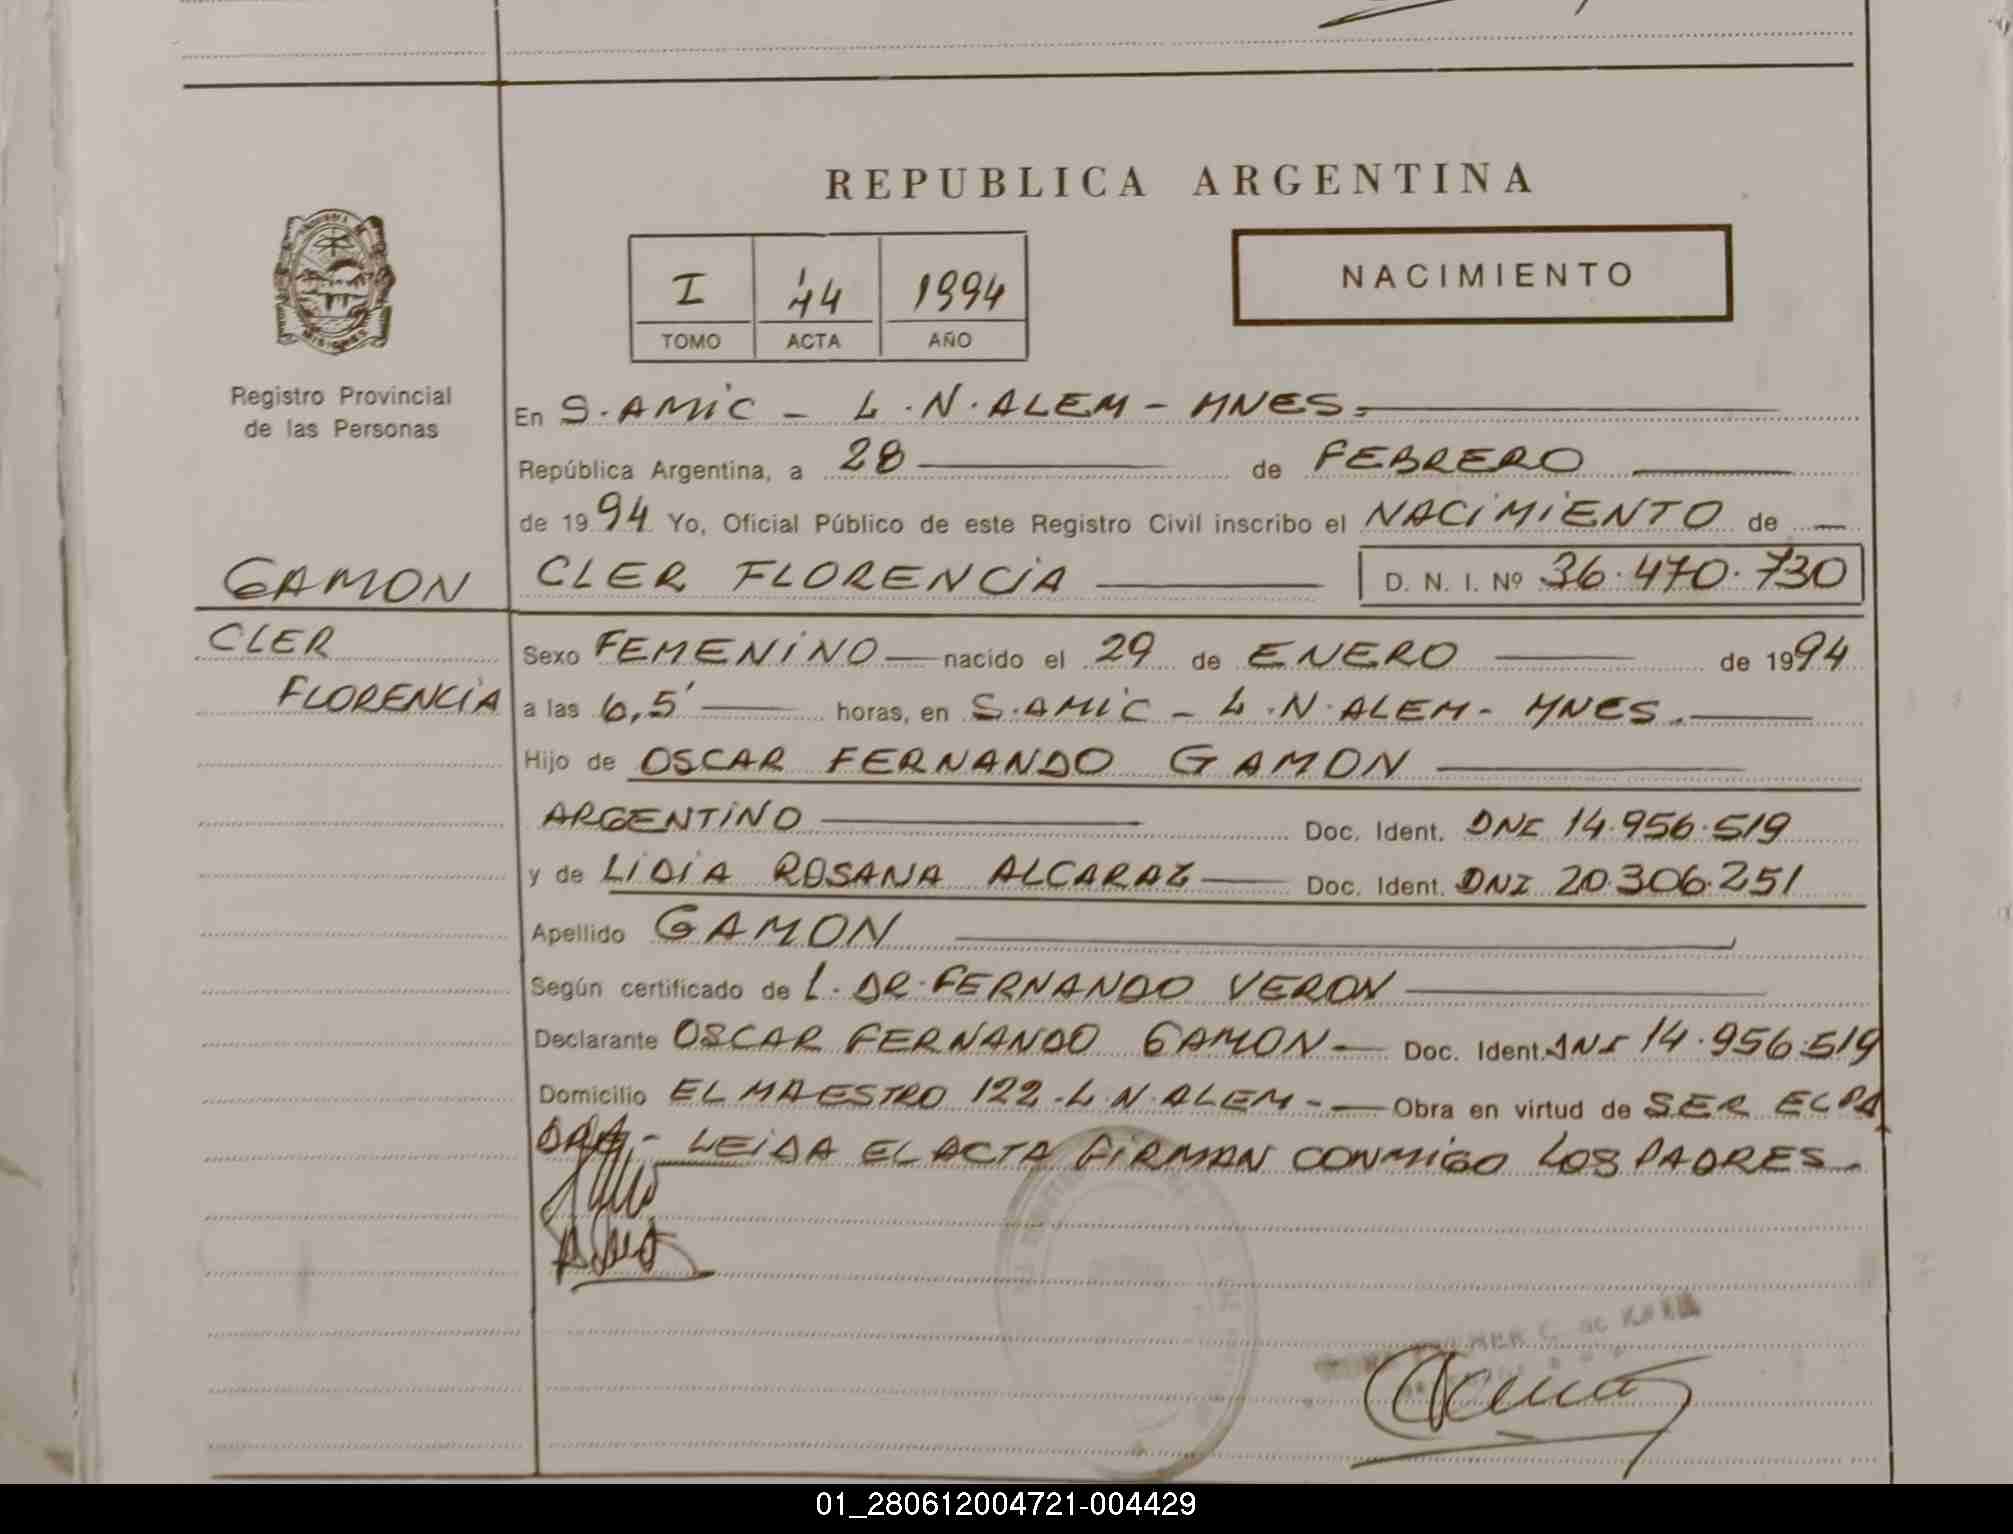 REPUBLICA ARGENTINA
NACIMIENTO
I 44 1994
TOMO ACTA AÑO
MISIONES
Registro Provincial
de las Personas
En S. AMIC - L. N. ALEM - MNES.
República Argentina, a 28 de FEBRERO
de 1994 Yo, Oficial Público de este Registro Civil inscribo el NACIMIENTO de
GAMON
CLER FLORENCIA D. N. I. Nº 36.470.730
CLER
FLORENCIA
Sexo FEMENINO nacido el 29 de ENERO de 1994
a las 6,5' horas, en S. AMIC - L. N. ALEM - MNES.
Hijo de OSCAR FERNANDO GAMON
ARGENTINO Doc. Ident. DNI 14.956.519
y de LIDIA ROSANA ALCARAZ Doc. Ident. DNI 20.306.251
Apellido GAMON
Según certificado de L. DR. FERNANDO VERON
Declarante OSCAR FERNANDO GAMON Doc. Ident. DNI 14.956.519
Domicilio EL MAESTRO 122 - L. N. ALEM - Obra en virtud de SER EL PA
DRE.- LEIDA EL ACTA FIRMAN CONMIGO LOS PADRES.
01_280612004721-004429